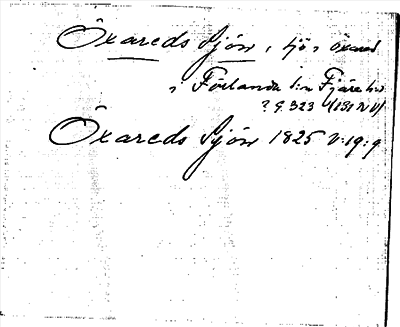 Öxareds Sjön, sjö, Öxared
i Förlanda s:n Fjäre hd
? G. 323 (1SV N V)
Öxareds Sjön 1825 V:19:9